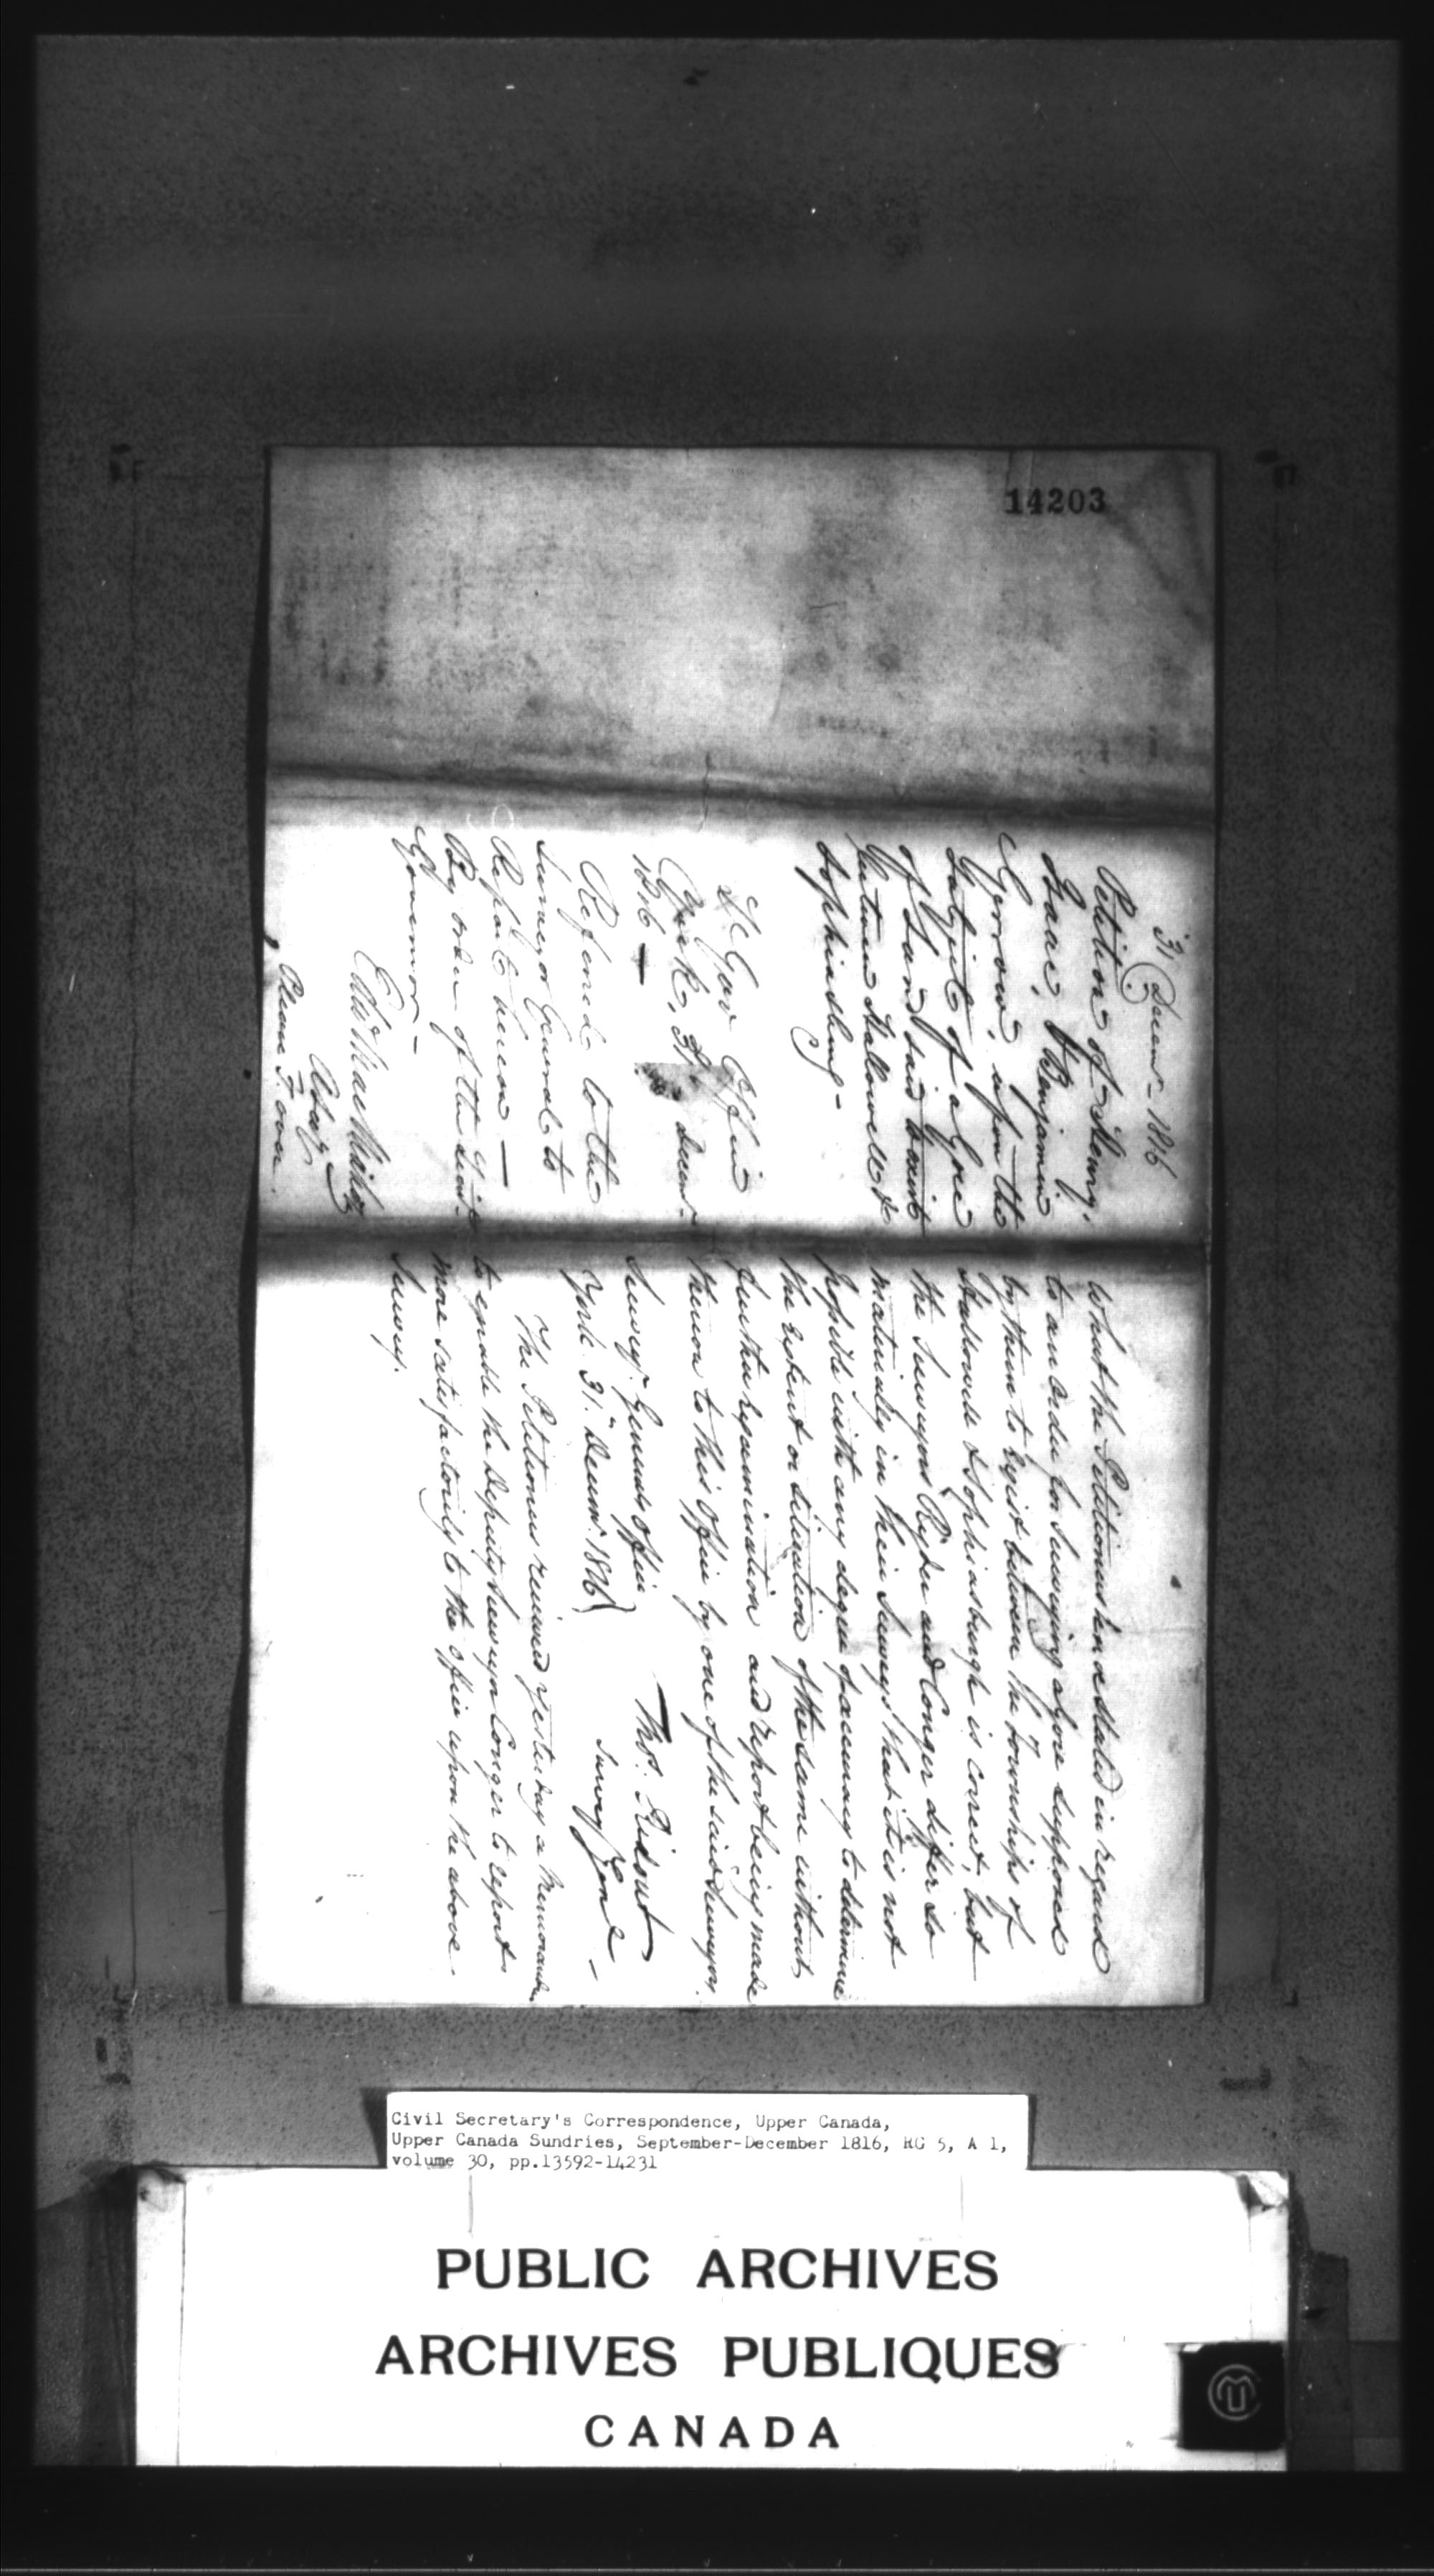 14203
31 Decemr. 1816
Petition of Henry,
Isaac, & Benjamin
Gerow, upon the
Subject of a Gore
of Land said to exist
between Hallowell &
Sophiasburg -
Lt Govr Office
York, 31 Decemr.
1816 —
Referred to the
Surveyor General to
Report hereon —
By order of the Lieut.
Governor -
Edw MacMahon
Please T. over.
What the Petitioners have stated in regard
to an order for Surveying a gore supposed
by them to exist between the Townships of
Hallowell & Sophiasburgh is correct; but
the Surveyors Ryder and Conger differ so
materially in their Surveys that it is not
possible with any degree of accuracy to determine
the extent or situation of the same without
further examination and report being made
thereon to this Office by one of the said Surveyors.
Surveyr. Generals Office
York 31st Decemr. 1816
Thos. Ridout
Survey Genl -
The Petitioners received yesterday a Memorandm.
to enable the Deputy Surveyor Conger to report
more satisfactorily to the Office upon the above
Survey.
Civil Secretary's Correspondence, Upper Canada,
Upper Canada Sundries, September-December 1816, RG 5, A 1,
volume 30, pp.13592-14231
PUBLIC ARCHIVES
ARCHIVES PUBLIQUES
CANADA